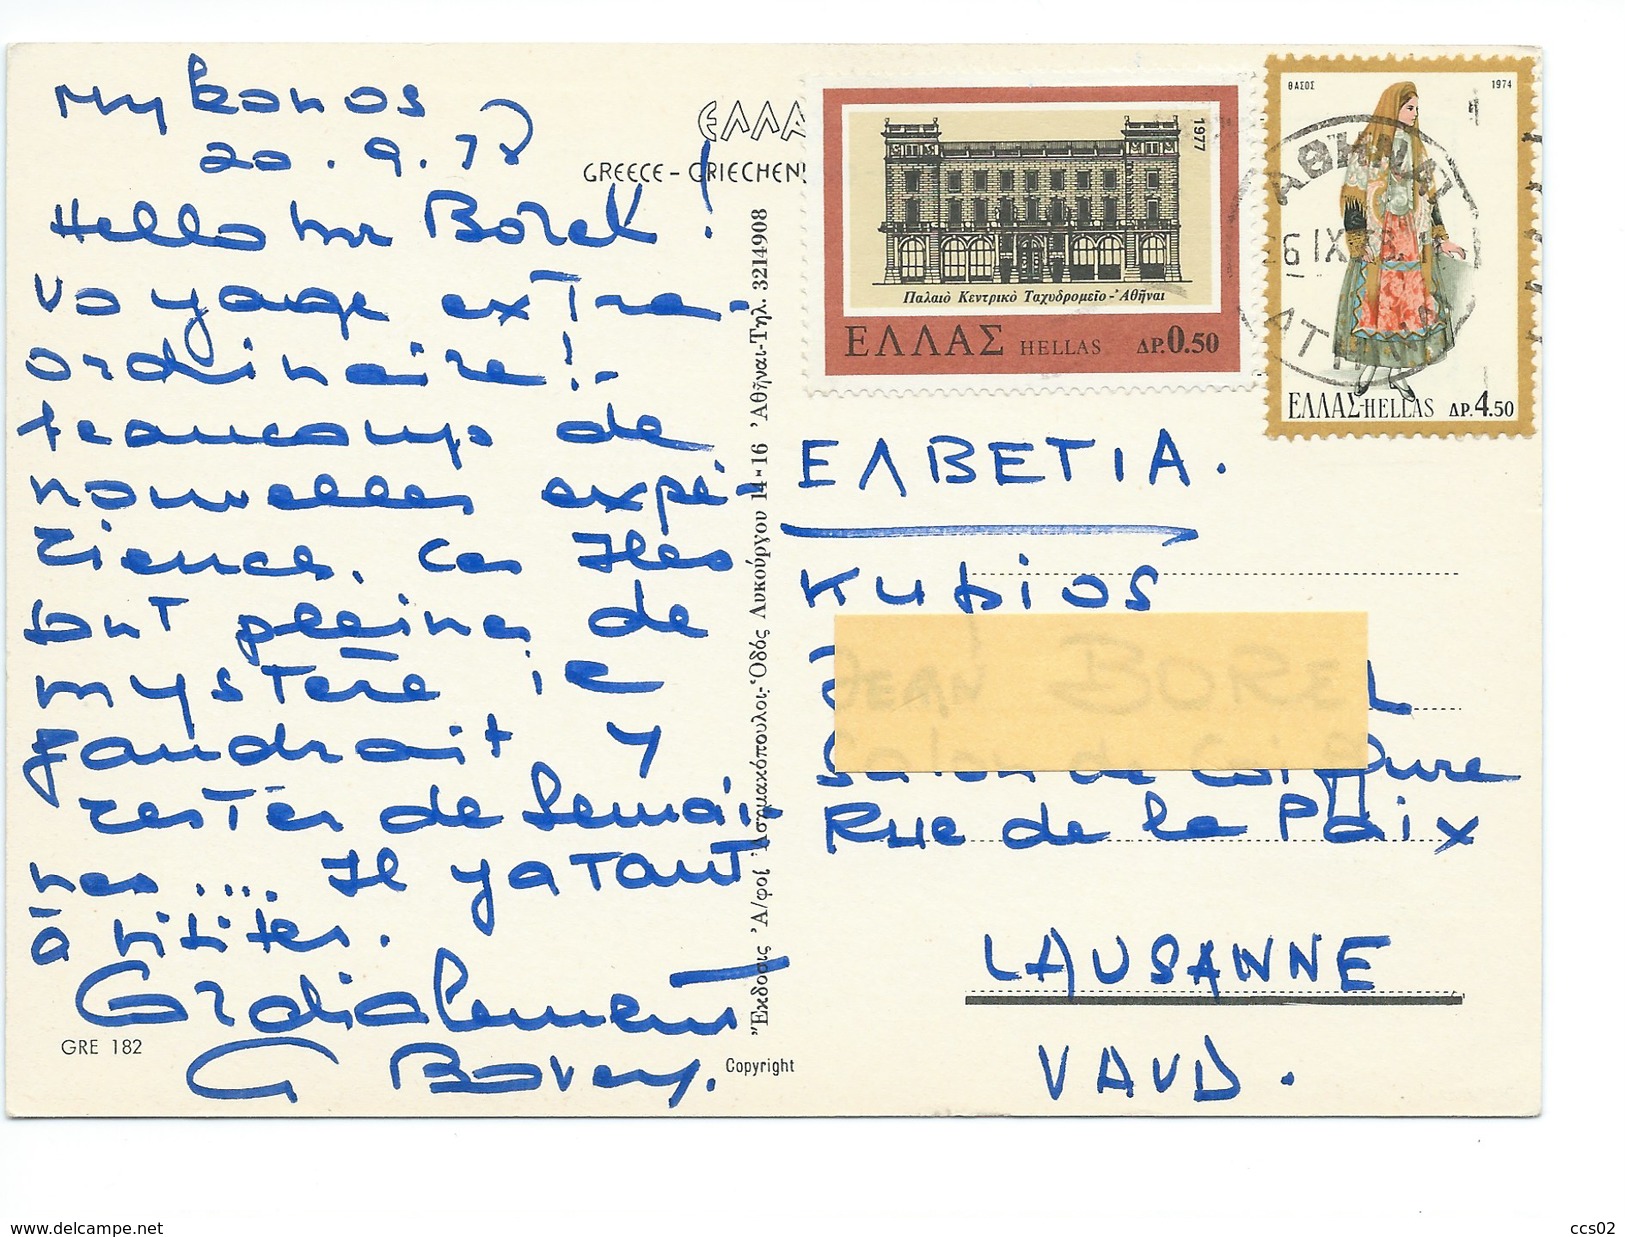 Mykonos
20.9.78
Hello Mr Borel !
voyage extra-
ordinaire !-
beaucoup de
nouvelles expé-
riences. Ces Iles
sont pleines de
mystère ie
faudrait y
rester de semai-
nes .... Il y a tant
à visiter.
Cordialement
G Bovey.
GRE 182
ΕΛΛΑ
GREECE - GRIECHEN
Ἔκδοσις Ἀ/φοὶ Ἀσημακόπουλοι-Ὁδός Λυκούργου 14-16 Ἀθῆναι-Τηλ. 3214908
Copyright
1977
Παλαιὸ Κεντρικὸ Ταχυδρομεῖο-Ἀθῆναι
ΕΛΛΑΣ HELLAS ΔΡ.0.50
ΘΑΣΟΣ 1974
ΕΛΛΑΣ-HELLAS ΔΡ.4.50
ΑΘΗΝΑΙ
26 IX
ΕΛΒΕΤΙΑ.
Κυρίος
JEAN BOREL
Salon de Coiffure
Rue de la Paix
LAUSANNE
VAUD.
www.delcampe.net
ccs02